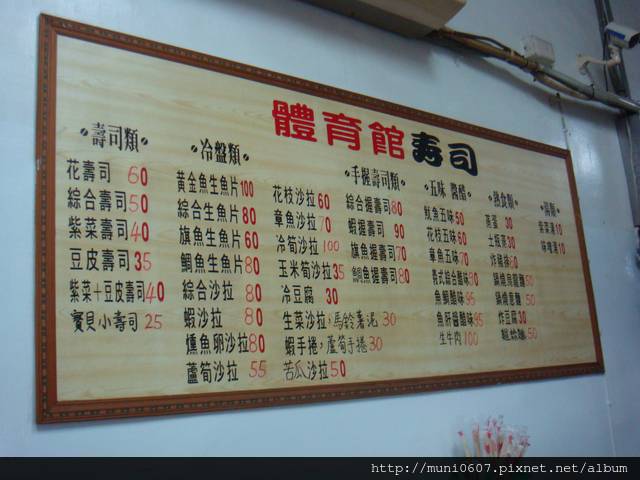 體育館壽司
壽司類
花壽司 60
綜合壽司50
紫菜壽司40
豆皮壽司35
紫菜十豆皮壽司40
寶貝小壽司 25
冷盤類
黃金魚生魚片100
綜合生魚片80
旗魚生魚片60
鯛魚生魚片80
綜合沙拉 80
蝦沙拉 80
燻魚卵沙拉80
蘆筍沙拉 55
花枝沙拉60
章魚沙拉70
冷筍沙拉100
玉米筍沙拉35
冷豆腐 30
生菜沙拉,馬鈴薯泥30
蝦手捲,蘆筍手捲30
苦瓜沙拉50
手握壽司類
綜合握壽司80
蝦握壽司 90
旗魚握壽司70
鯛魚握壽司80
五味 醬醋
魷魚五味50
花枝五味60
章魚五味70
魚鯛醋味95
生牛肉100
熱食類
蒸蛋 30
土瓶蒸30
鍋燒烏龍麵50
鍋燒意麵 50
炸豆腐30
湯類
紫菜湯10
味噌湯10
http://muni0607.pixnet.net/album